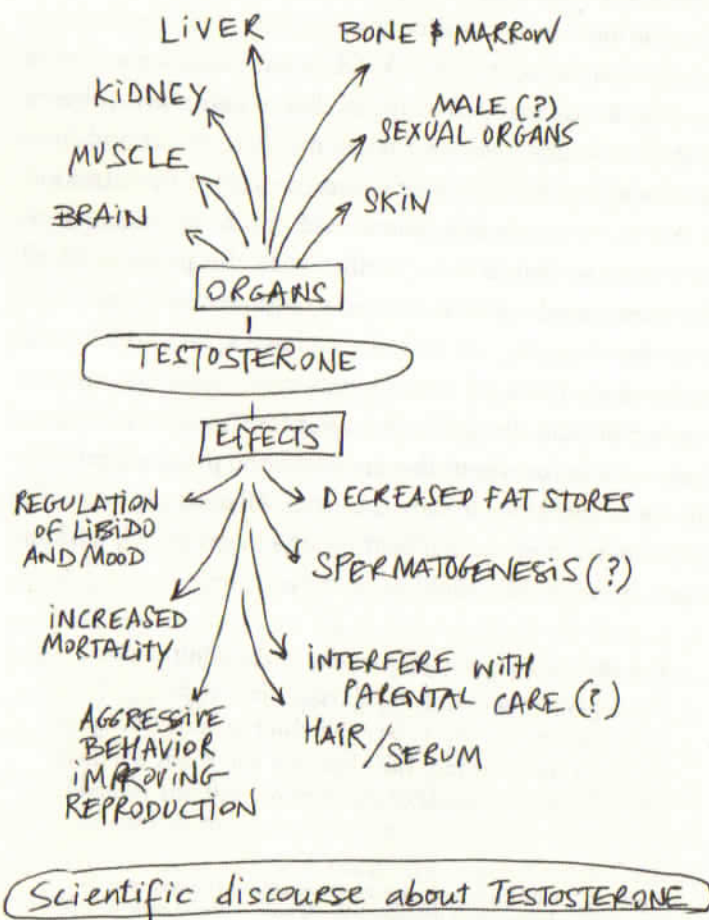 LIVER
BONE & MARROW
KIDNEY
MALE (?)
SEXUAL ORGANS
MUSCLE
SKIN
BRAIN
ORGANS
TESTOSTERONE
EFFECTS
REGULATION
OF LIBIDO
AND MOOD
DECREASED FAT STORES
SPERMATOGENESIS (?)
INCREASED
MORTALITY
INTERFERE WITH
PARENTAL CARE (?)
AGGRESSIVE
BEHAVIOR
IMPROVING
REPRODUCTION
HAIR/SEBUM
Scientific discourse about TESTOSTERONE